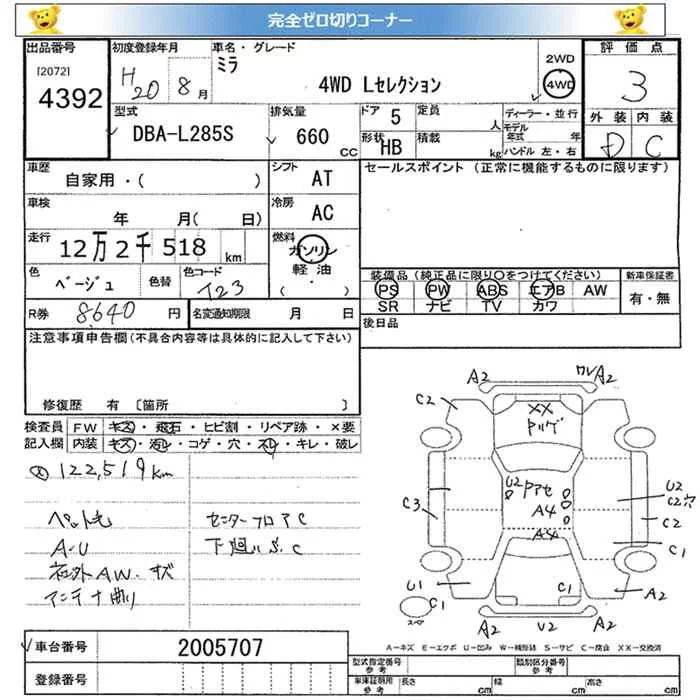 完全ゼロ切りコーナー
出品番号
[2072]
4392
初度登録年月
H20 8月
車名・グレード
ミラ
4WD Lセレクション
2WD
4WD
評価点
3
外装 内装
D C
型式
DBA-L285S
排気量
660 CC
ドア 5
定員 人
形状 HB
積載 kg
ディーラー・並行
モデル年式 年
ハンドル 左・右
車歴
自家用・( )
シフト
AT
車検
年 月( 日)
冷房
AC
走行
12万2千518 km
燃料
ガソリン
軽油
( ・ )
色
ベージュ
色替
色コード
T23
R券 8,640 円
名変通知期限 月 日
セールスポイント (正常に機能するものに限ります)
装備品(純正品に限り○をつけてください)
PS PW ABS エアB AW
SR ナビ TV カワ
新車保証書
有・無
後日品
注意事項申告欄(不具合内容等は具体的に記入して下さい)
修復歴 有 〔箇所 〕
検査員記入欄
FW キズ・飛石・ヒビ割・リペア跡・×要
内装 キズ・汚レ・コゲ・穴・スレ・キレ・破レ
122,519km
ペット毛
A-U
社外AW.キズ
アンテナ曲り
センターフロアC
下廻りS.C
A2
ワレA2
C2
XX
アリゲ
U2
アセ
A4
A4
C3
U2
C2穴
C2
C1
U1
C1
C1
スペア
A2
A2
U2
A2
A=キズ E=エクボ U=凹み W=補修跡 S=サビ C=腐食 XX=交換済
車台番号
2005707
登録番号
型式指定番号 参考
類別区分番号 参考
車庫証明用 参考
長さ cm
幅 cm
高さ cm